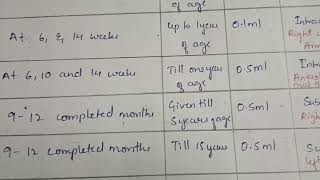 of age
At 6, & 14 weeks
up to 1 year of age
0.1ml
Right
Arm
At 6, 10 and 14 weeks
Till one year of age
0.5ml
9-12 completed months
Given till 5 years of age
0.5ml
Right
9-12 completed months
Till 15 years
0.5ml